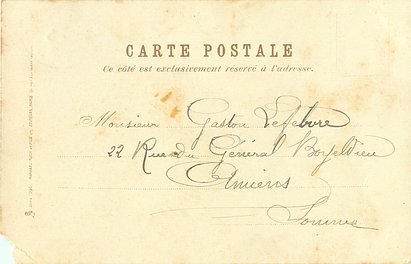 CARTE POSTALE
Ce côté est exclusivement réservé à l'adresse.
Monsieur Gaston Lefebvre
22 Rue du Général
Amiens
Somme